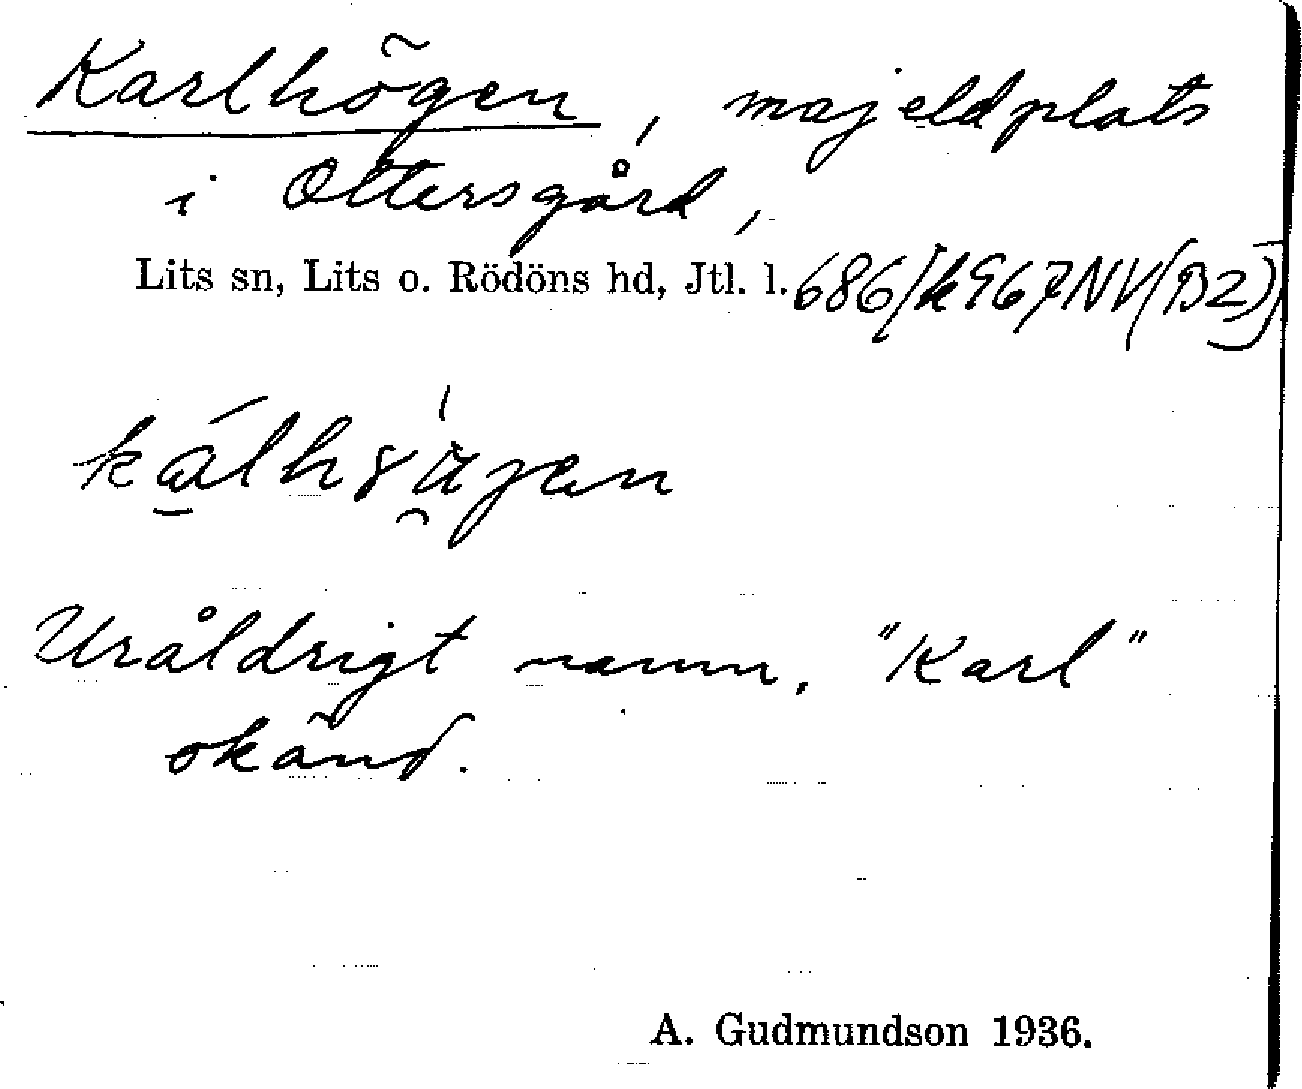 Karlhögen, majeldplats
i Ottersgård,
Lits sn, Lits o. Rödöns hd, Jtl. l. 686/k967NV(B2)
Uråldrigt namn. "Karl"
okänd.
A. Gudmundson 1936.